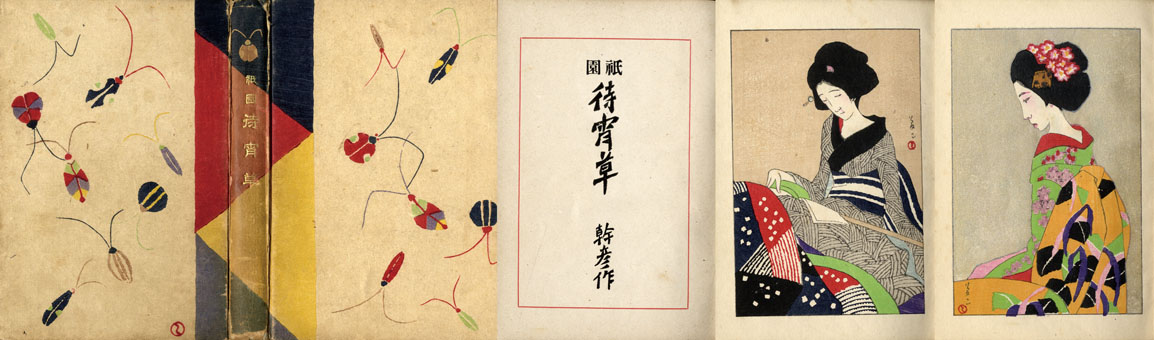 祇園待宵草
祇園
待宵草
幹彦作